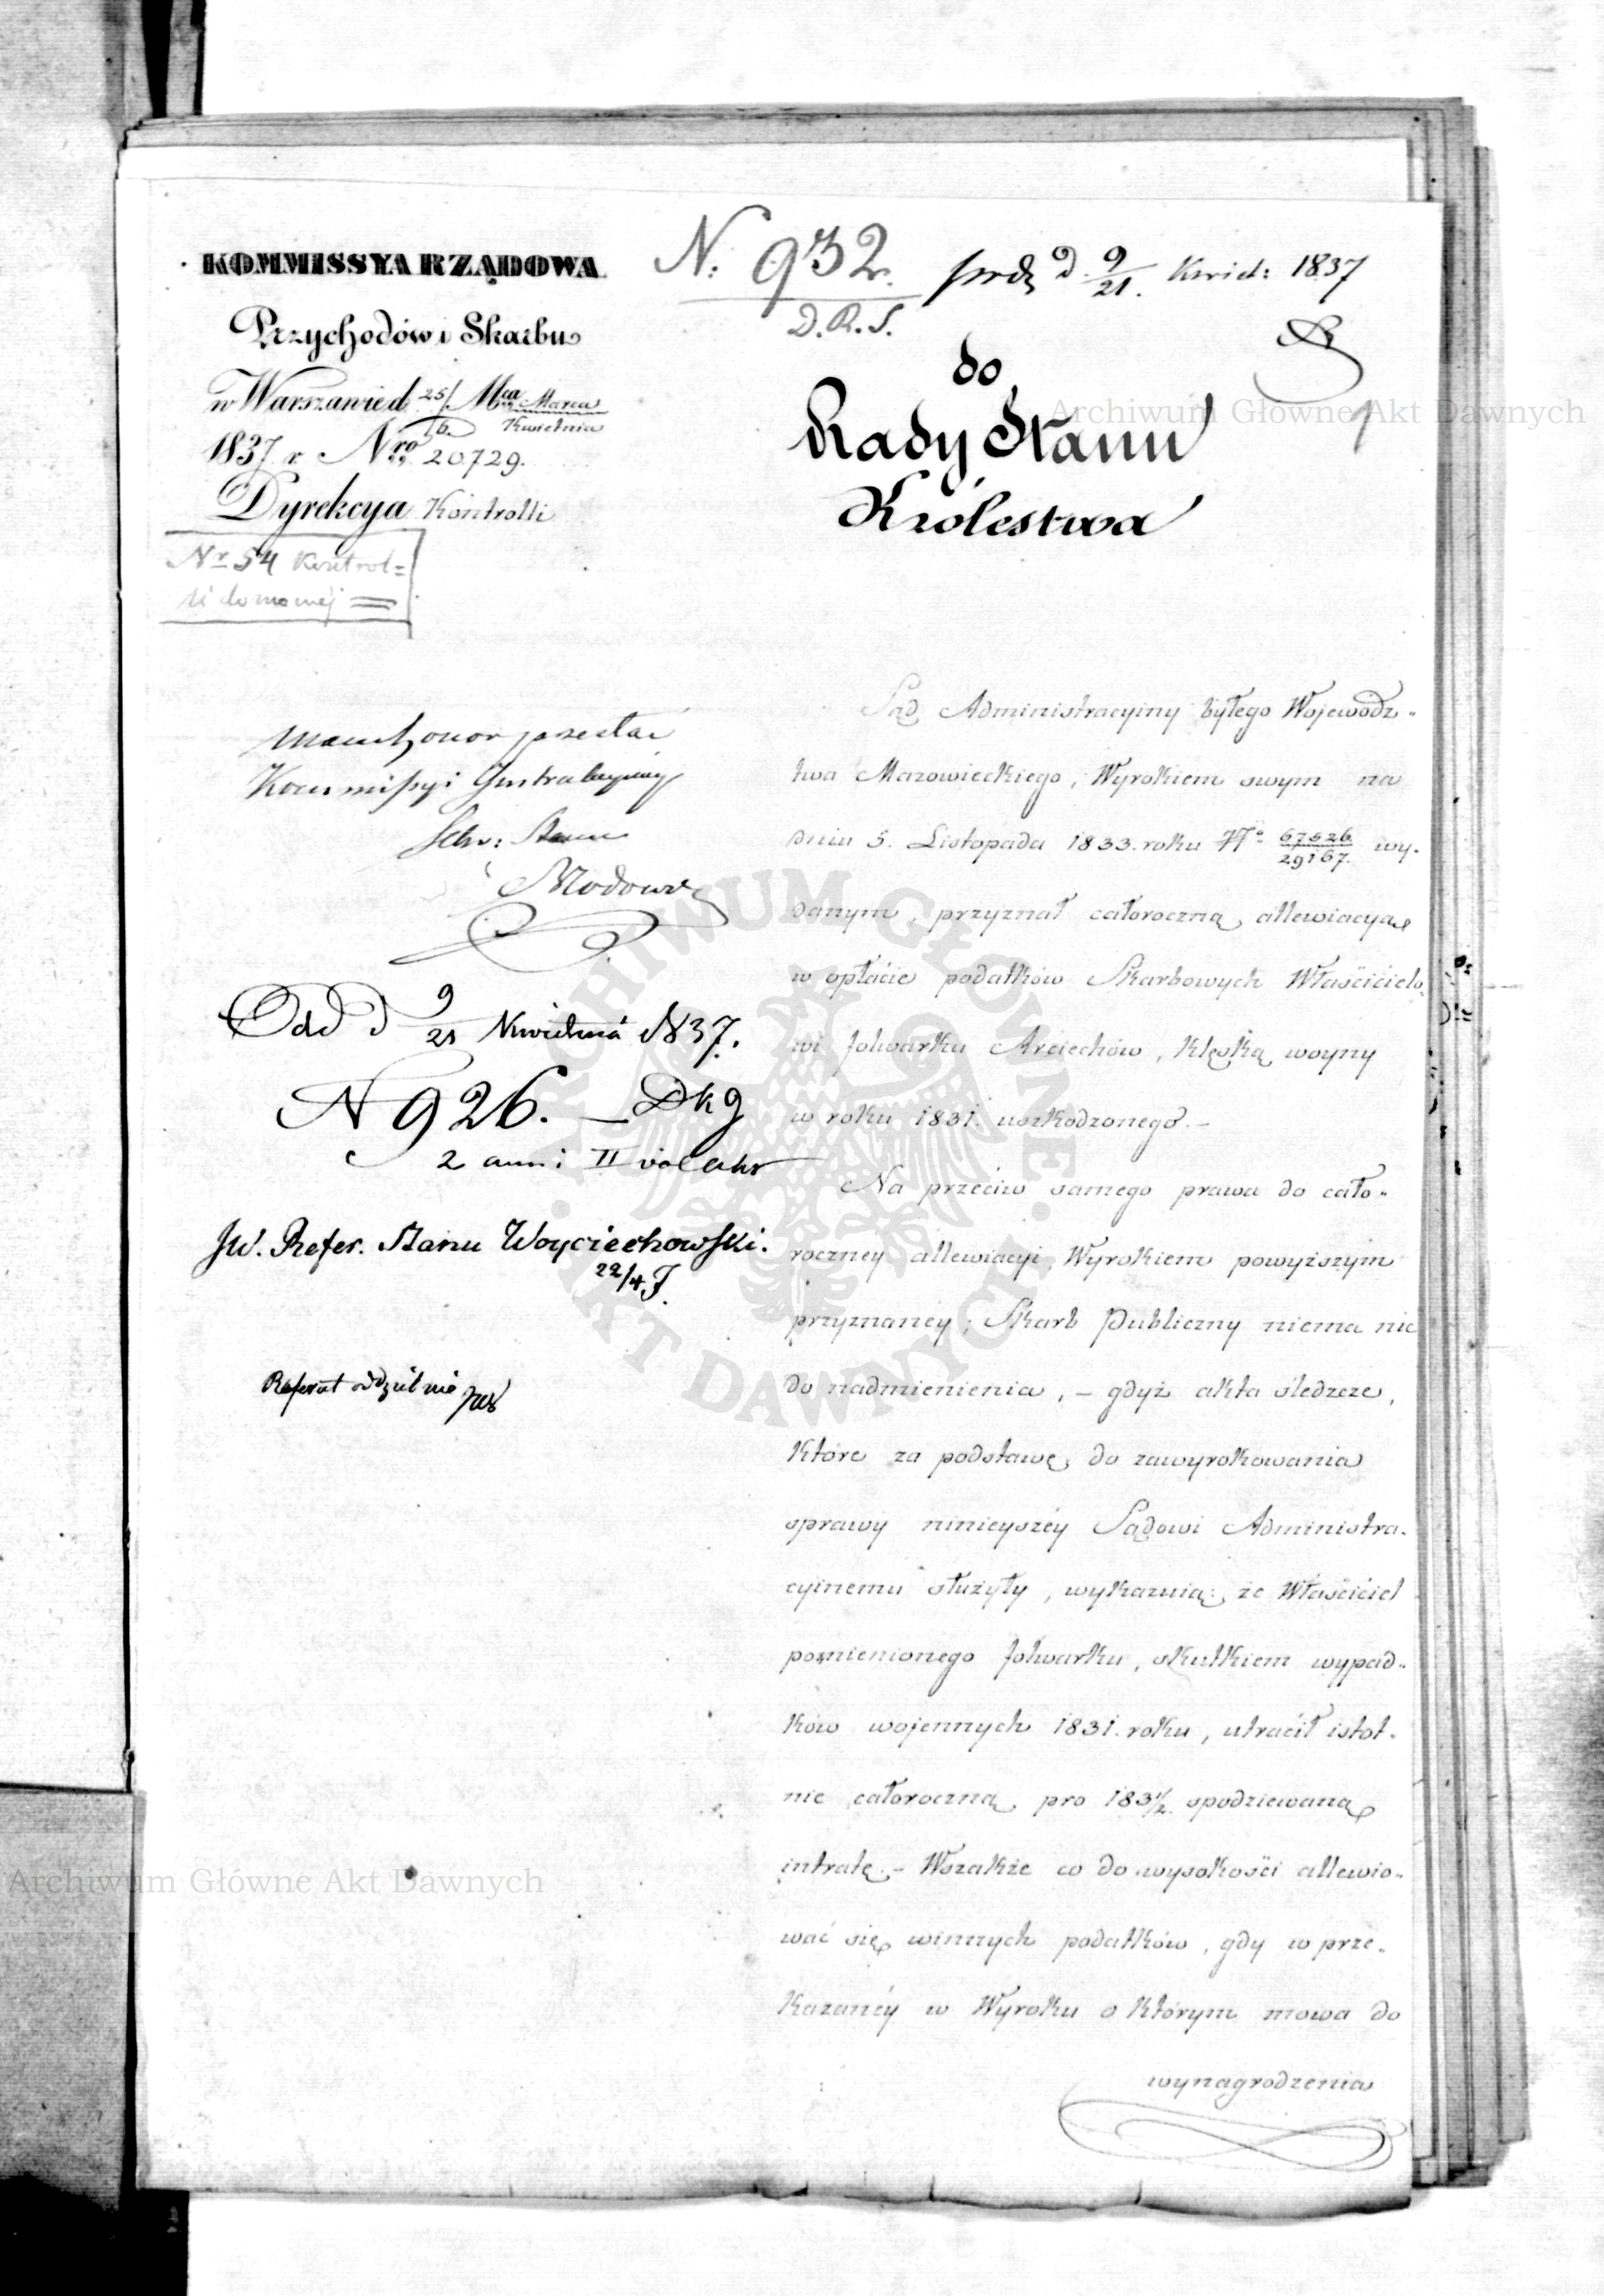 KOMMISSYA RZĄDOWA
Przychodów i Skarbu
w Warszawie d. 25/6 Mca Marca Kwietnia
1837 r Nro 20729.
Dyrekcya Kontrolli
Nr 54 Kontrol=
li domowéj
N. 932.
D.R.S.
d. 9/21. Kwiet: 1837
do
Rady Stanu
Królestwa
1
mam honor przesłać
Kommissyi Instrukcyiney
Sekr: Stanu
Odd d 9/21 Kwietnia 1837.
N 926.
JW. Refer. Stanu Woyciechowski.
22/4
Referat oddzielnie
Sąd Administracyiny byłego Wojewódz-
twa Mazowieckiego, Wyrokiem swym na
dniu 5. Listopada 1833. roku No 67526/29167. wy-
danym, przyznał całoroczną allewiacyą
w opłacie podatków Skarbowych Właścicielo-
wi folwarku Arciechów, klęską woyny
w roku 1831. uszkodzonego. –
Na przeciw samego prawa do cało-
roczney allewiacyi, Wyrokiem powyższym
przyznaney; Skarb Publiczny niema nic
do nadmienienia, – gdyż akta śledzcze,
które za podstawę do zawyrokowania
sprawy ninieyszéy Sądowi Administra-
cyinemu służyły, wykazuią: że Właściciel
pomienionego folwarku, skutkiem wypad-
ków wojennych 1831. roku, utracił istot-
nie całoroczną pro 1831/2. spodziewaną
intratę. – Wszakże co do wysokości allewio-
wać się winnych podatków, gdy w prze-
kazanéy w Wyroku o którym mowa do
wynagrodzenia
Archiwum Główne Akt Dawnych
Archiwum Główne Akt Dawnych
ARCHIWUM GŁÓWNE
AKT DAWNYCH